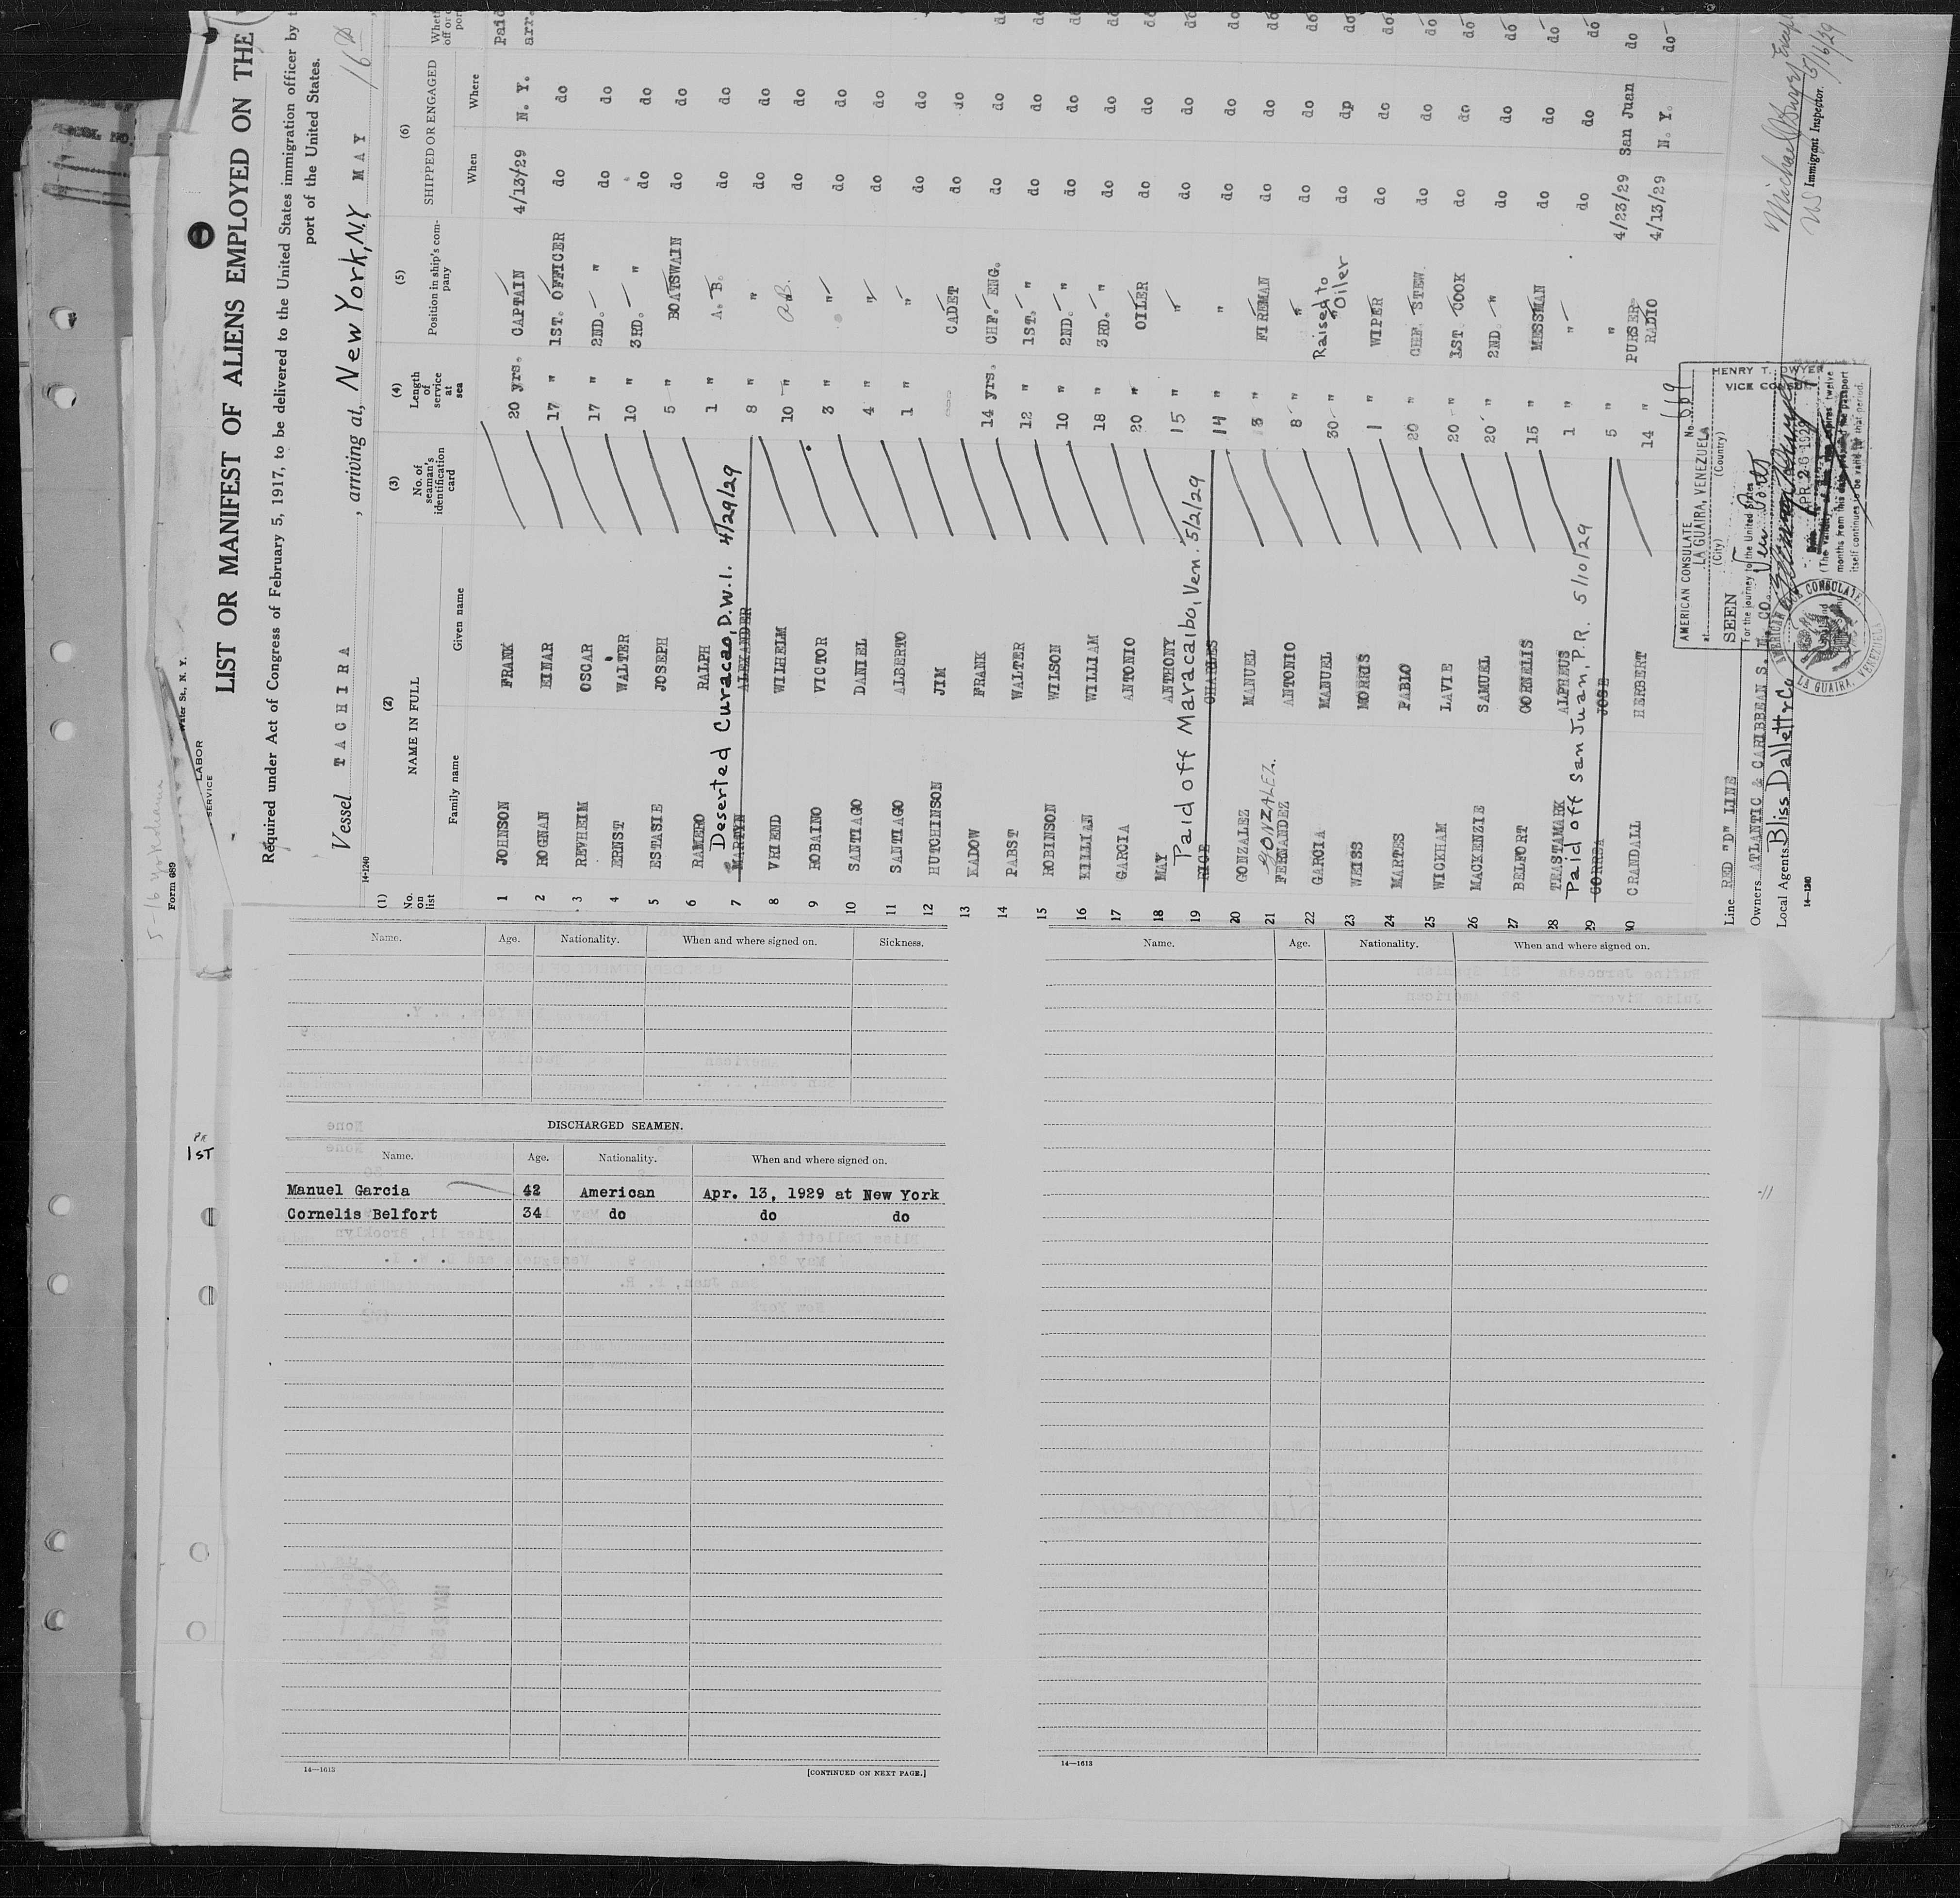 LIST OR MANIFEST OF ALIENS EMPLOYED ON THE
Required under Act of Congress of February 5, 1917, to be delivered to the United States immigration officer by
port of the United States.
Vessel TACHIRA , arriving at, New York, N.Y. MAY 16
14-1240
(1) (2) (3) (4) (5) (6)
No. on list
NAME IN FULL
Family name Given name
No. of seaman's identification card
Length of service at sea
Position in ship's company
SHIPPED OR ENGAGED
When Where
1 JOHNSON FRANK 20 yrs. CAPTAIN 4/13/29 N. Y. Paid
2 ROGNAN EINAR 17 " 1ST. OFFICER do do
3 REVHEIM OSCAR 17 " 2ND. " do do
4 ERNST WALTER 10 " 3RD. " do do
5 ESTASIE JOSEPH 5 " BOATSWAIN do do
6 RAMERO RALPH 1 " A. B. do do
Deserted Curacao, D.W.I. 4/29/29
7 MARTYN ALEXANDER 8 " " do do
8 VRIEND WILHELM 10 " A.B. do do
9 ROBAINO VICTOR 3 " " do do
10 SANTIAGO DANIEL 4 " " do do
11 SANTIAGO ALBERTO 1 " " do do
12 HUTCHINSON JIM CADET do do
13 KADOW FRANK 14 yrs. CHF. ENG. do do do
14 PABST WALTER 12 " 1ST. " do do do
15 ROBINSON WILSON 10 " 2ND. " do do do
16 KILLIAN WILLIAM 18 " 3RD. " do do do
17 GARCIA ANTONIO 20 " OILER do do do
18 MAY ANTHONY 15 " " do do do
Paid off Maracaibo, Ven. 5/2/29
19 RICE CHARLES 14 " " do do do
20 GONZALEZ MANUEL 3 " FIREMAN do do do
GONZALEZ.
21 FERNANDEZ ANTONIO 8 " " do do do
22 GARCIA MANUEL 30 " Raised to Oiler do do do
23 WEISS MORRIS 1 " WIPER do do do
24 MARTES PABLO 20 " CHF. STEW. do do do
25 WICKHAM LAVIE 20 " 1ST. COOK do do do
26 MACKENZIE SAMUEL 20 " 2ND. " do do do
27 BELFORT CORNELIS 15 " MESSMAN do do do
28 TRASTAMARK ALPHEUS 1 " " do do do
Paid off San Juan, P.R. 5/10/29
29 CORREA JOSE 5 " PURSER 4/23/29 San Juan do
30 CRANDALL HERBERT 14 " RADIO 4/13/29 N. Y. do
Line RED "D" LINE
Owners ATLANTIC & CARIBBEAN S. N. CO.
Local Agents Bliss Dallett & Co
14-1240
AMERICAN CONSULATE No. 669
at LA GUAIRA, VENEZUELA
(City) (Country)
SEEN
For the journey to the United States
APR 26 1929
(The validity of this visa expires twelve
months from this date provided the passport
itself continues to be valid for that period.
HENRY T.
VICE CO
AMERICAN CONSULATE
LA GUAIRA, VENEZUELA
5/16/29
US Immigrant Inspector.
Form 689
LABOR
SERVICE
Water St., N. Y.
1ST
Name. Age. Nationality. When and where signed on. Sickness.
DISCHARGED SEAMEN.
Name. Age. Nationality. When and where signed on.
Manuel Garcia 42 American Apr. 13, 1929 at New York
Cornelis Belfort 34 do do do
14—1613
[CONTINUED ON NEXT PAGE.]
Name. Age. Nationality. When and where signed on.
14—1613